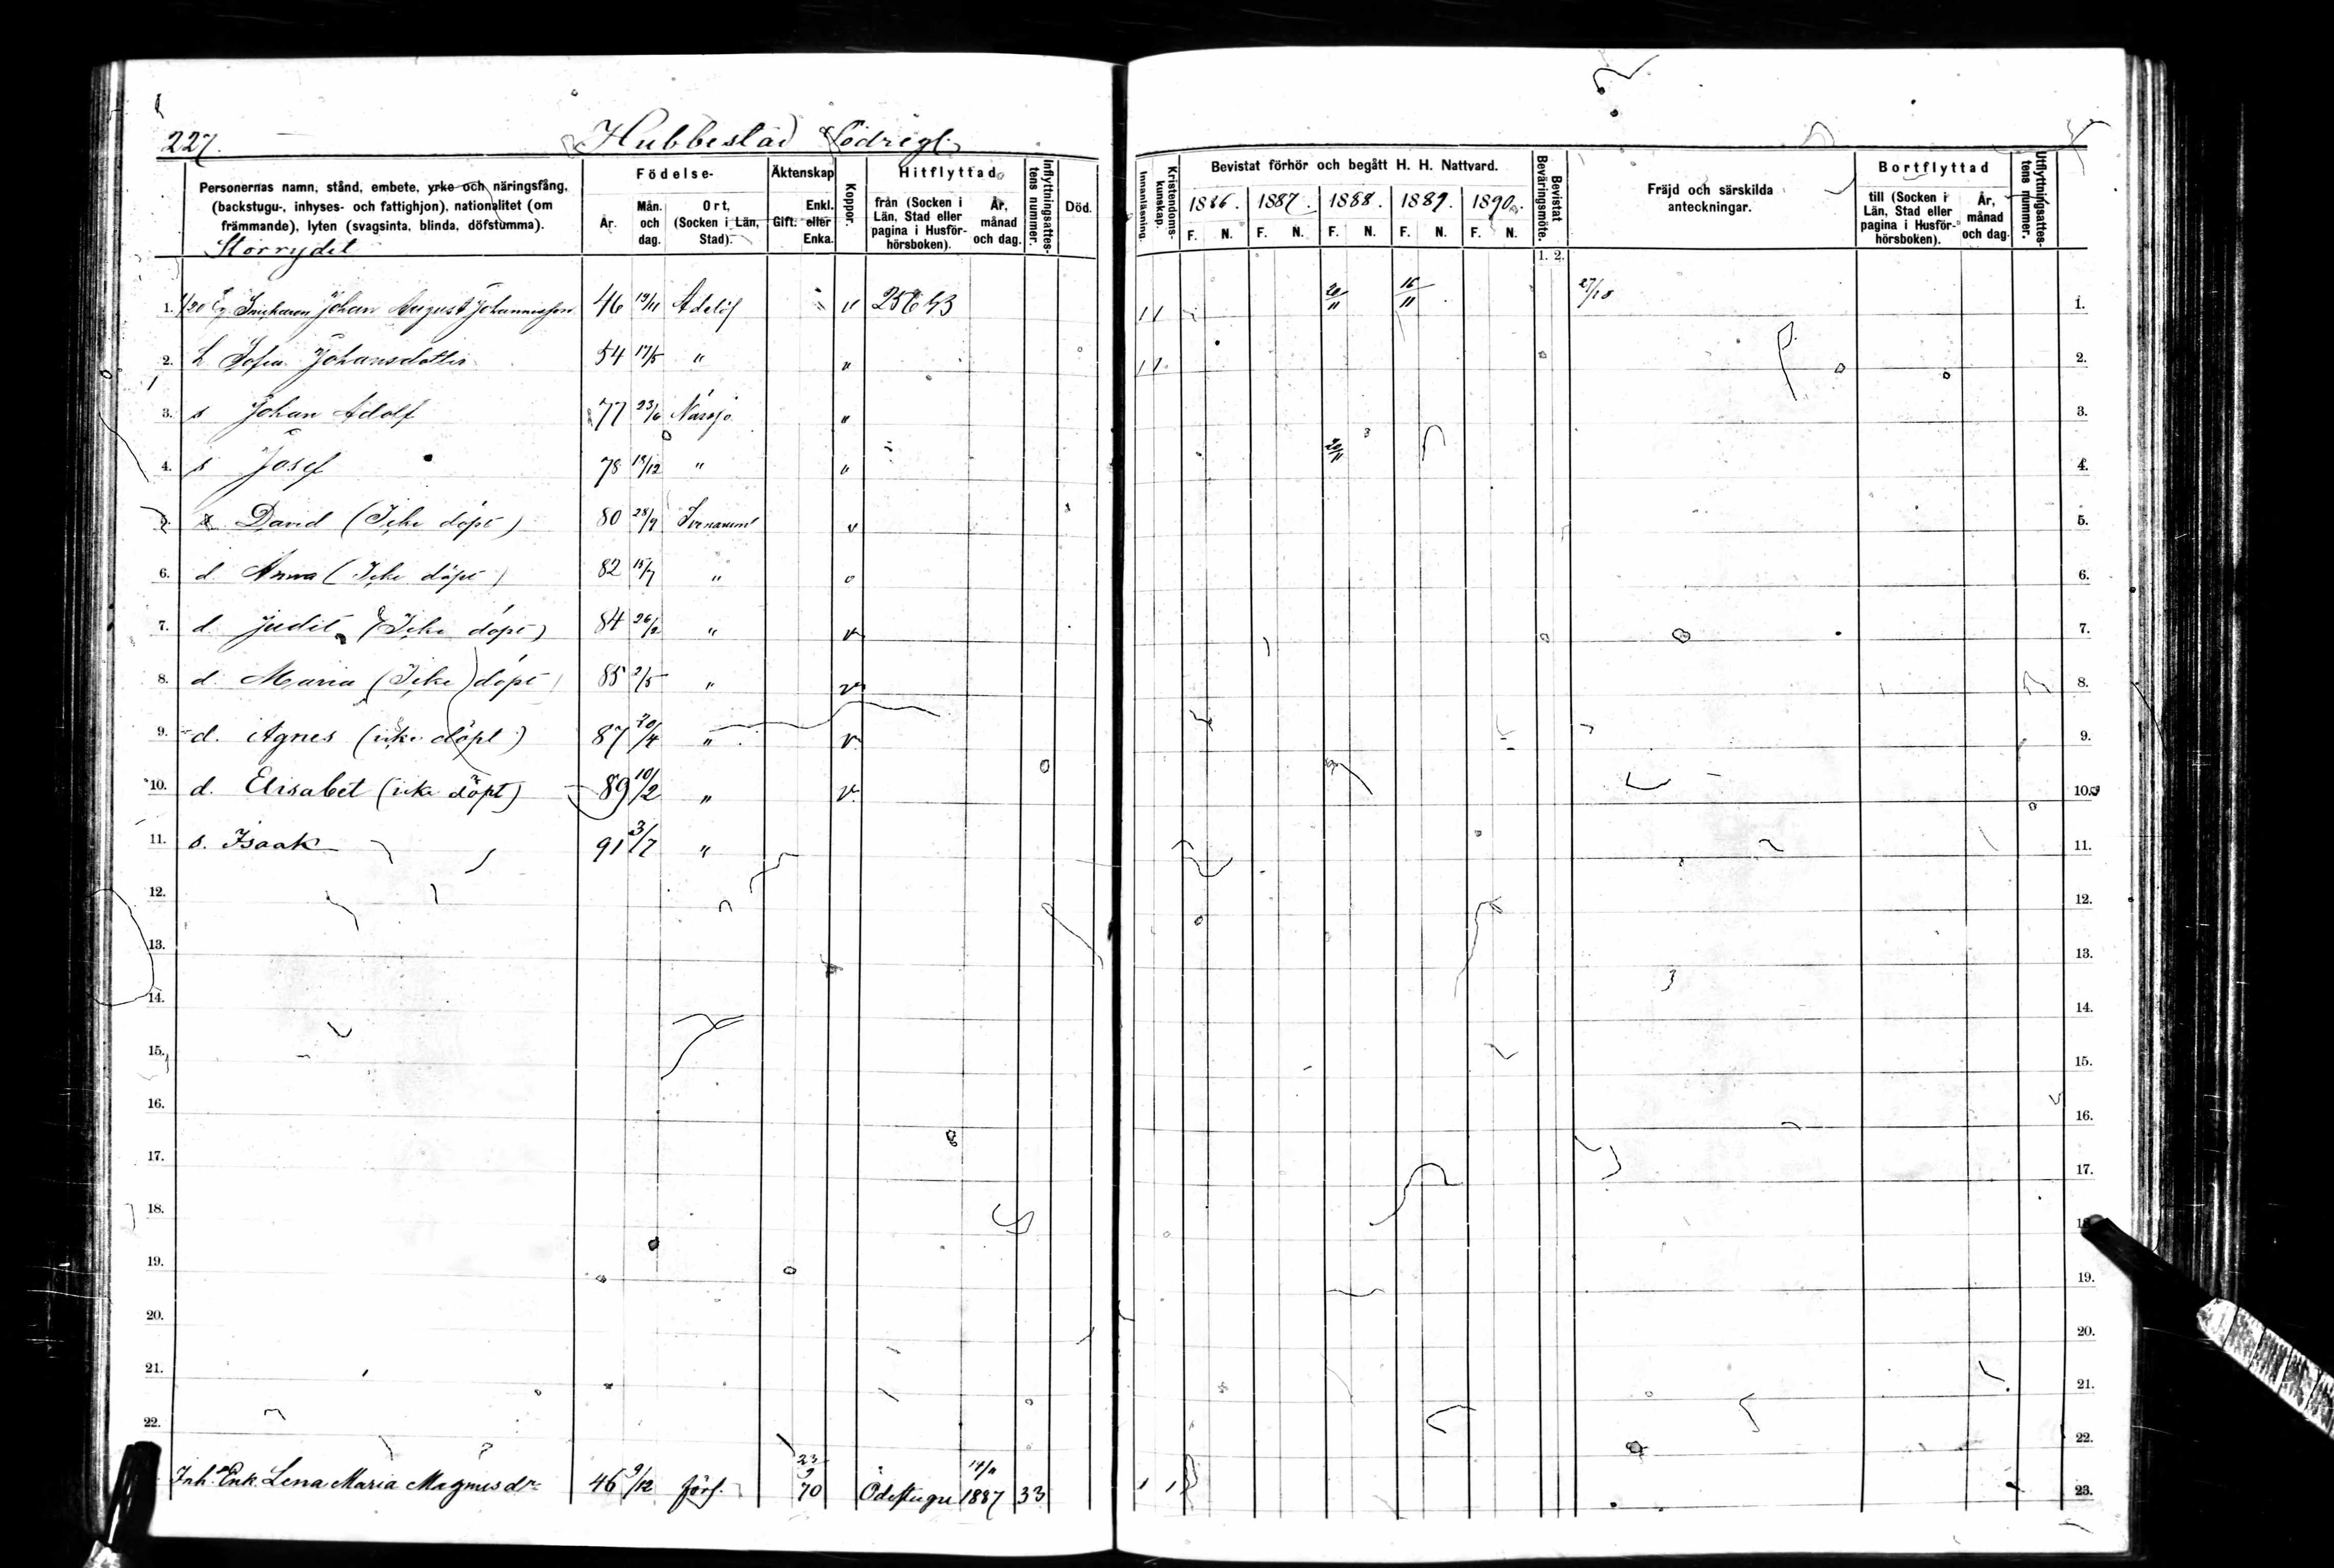 227.
Hubbestad Södregl.
Personernas namn, stånd, embete, yrke och näringsfång, (backstugu-, inhyses- och fattighjon), nationalitet (om främmande), lyten (svagsinta, blinda, döfstumma).
Födelse-
År.
Mån. och dag.
Ort, (Socken i Län, Stad).
Äktenskap
Gift.
Enkl. eller Enka.
Koppor.
Hitflyttad
från (Socken i Län, Stad eller pagina i Husförhörsboken).
År, månad och dag.
Inflyttningsattestens nummer.
Död.
Innanläsning.
Kristendomskunskap.
Bevistat förhör och begått H. H. Nattvard.
1886. 1887. 1888. 1889. 1890.
F. N. F. N. F. N. F. N. F. N.
Bevistat Beväringsmöte.
1. 2.
Fräjd och särskilda anteckningar.
Bortflyttad
till (Socken i Län, Stad eller pagina i Husförhörsboken).
År, månad och dag.
Utflyttningsattestens nummer.
Storrydet
1. Johan August Johannesson 46 19/11 Adelöf " 20/11 16/11 1.
2. h Sofia Johansdotter 54 17/5 " " 2.
3. s Johan Adolf 77 23/6 Nässjö " 3.
4. s Josef 78 18/12 " " 4.
5. s David (Icke döpt) 80 28/9 v 5.
6. d. Anna (Icke döpt) 82 15/7 " 6.
7. d. Judit (Icke döpt) 84 26/2 " v 7.
8. d. Maria (Icke döpt) 85 2/5 " v 8.
9. d. Agnes (icke döpt) 87 20/4 " v 9.
10. d. Elisabet (icke döpt) 89 10/2 " v. 10.
11. s. Isaak 91 3/7 " 11.
12. 12.
13. 13.
14. 14.
15. 15.
16. 16.
17. 17.
18. 18.
19. 19.
20. 20.
21. 21.
22. 22.
Inh. Enk. Lena Maria Magnusdr 46 9/12 förs. 23/9 70 Ödestugu 14/11 1887 33 23.